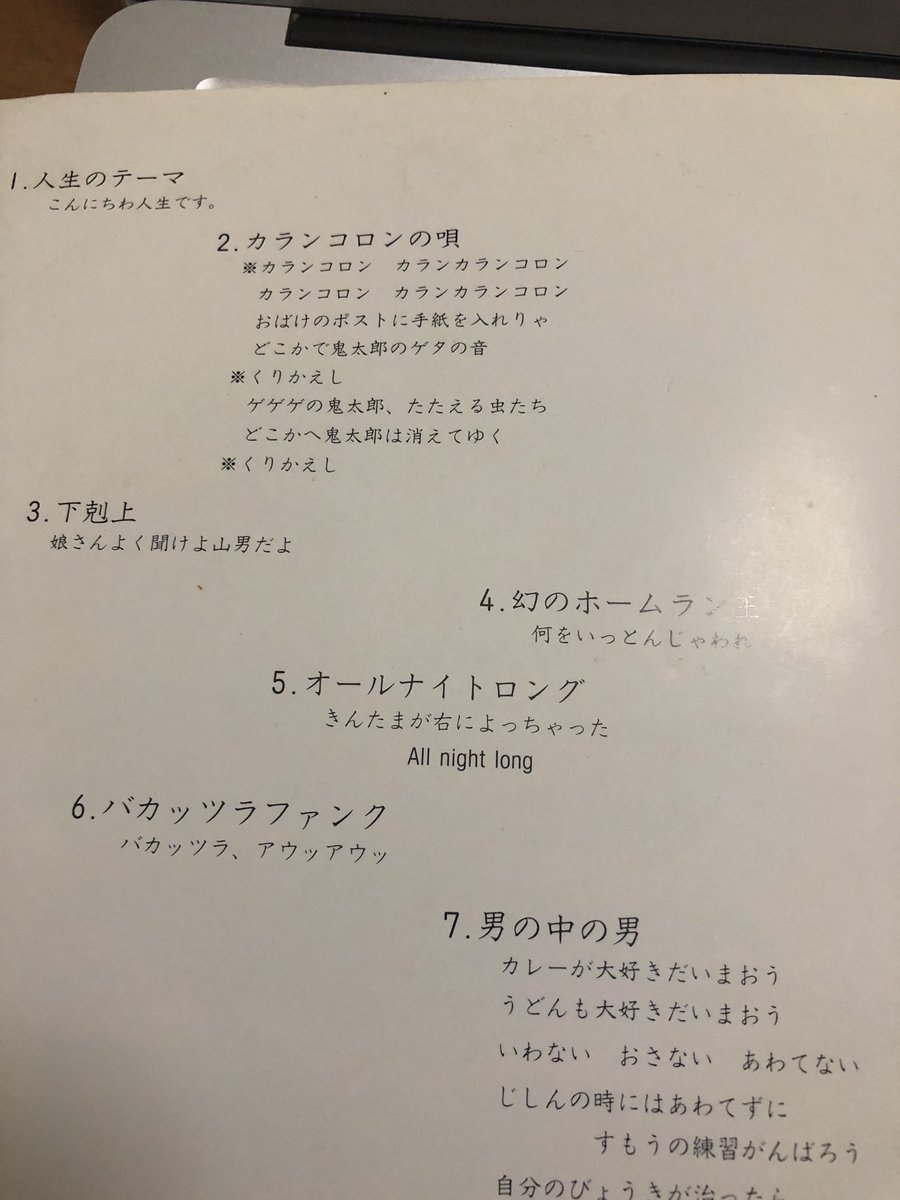 1.人生のテーマ
こんにちわ人生です。
2.カランコロンの唄
※カランコロン　カランカランコロン
カランコロン　カランカランコロン
おばけのポストに手紙を入れりゃ
どこかで鬼太郎のゲタの音
※くりかえし
ゲゲゲの鬼太郎、たたえる虫たち
どこかへ鬼太郎は消えてゆく
※くりかえし
3.下剋上
娘さんよく聞けよ山男だよ
4.幻のホームラン王
何をいっとんじゃわれ
5.オールナイトロング
きんたまが右によっちゃった
All night long
6.バカッツラファンク
バカッツラ、アウッアウッ
7.男の中の男
カレーが大好きだいまおう
うどんも大好きだいまおう
いわない　おさない　あわてない
じしんの時にはあわてずに
すもうの練習がんばろう
自分のびょうきが治ったら